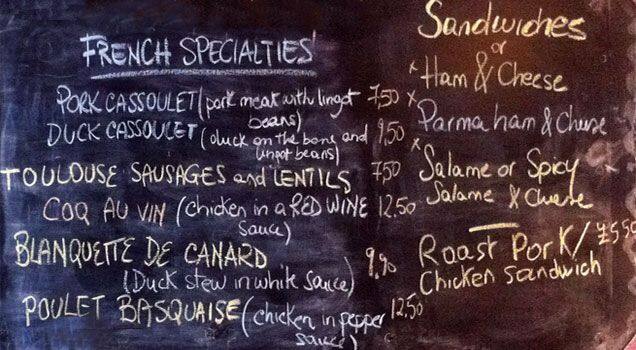 FRENCH SPECIALTIES
PORK CASSOULET (pork meat with lingot 7,50
beans)
DUCK CASSOULET (duck on the bone and 9,50
lingot beans)
TOULOUSE SAUSAGES and LENTILS 7,50
COQ AU VIN (chicken in a RED WINE 12,50
sauce)
BLANQUETTE DE CANARD 9,90
(Duck stew in white sauce)
POULET BASQUAISE (chicken in pepper 12,50
sauce)
Sandwiches
of
x Ham & Cheese
x Parma ham & Cheese
x Salame or Spicy
Salame & Cheese
Roast Pork/ £5,50
Chicken Sandwich